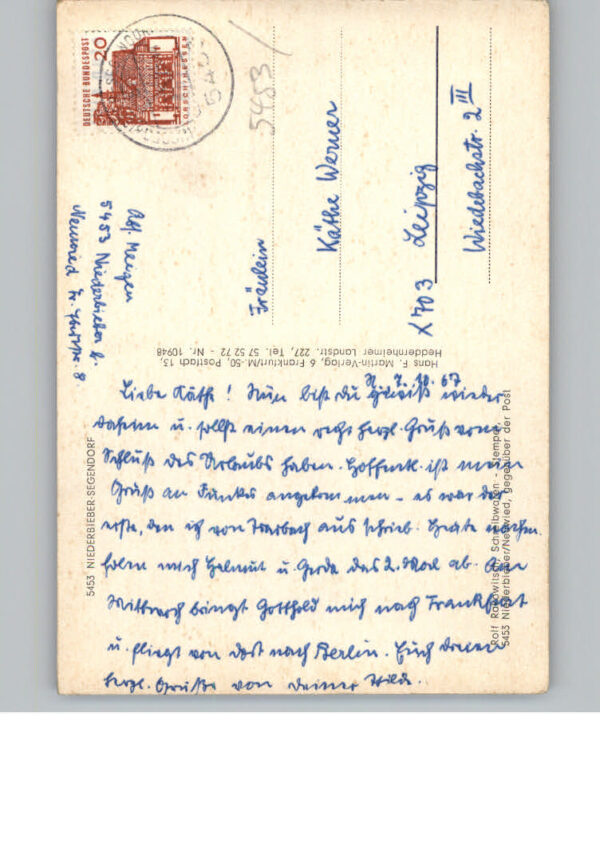 DEUTSCHE BUNDESPOST
20
LORSCH/HESSEN
5453
Abs. Meizen
5453 Niederbieber b.
Neuwied
Fräulein
Käthe Werner
X 703 Leipzig
Wiedebachstr. 2 III
Hans F. Martin-Verlag, 6 Frankfurt/M-50, Postfach 13,
Heddernheimer Landstr. 227, Tel. 57 52 72 - Nr. 10948
5453 NIEDERBIEBER-SEGENDORF
N. 7. 10. 67
Liebe Käthe! Nun bist du gewiß wieder
daheim u. sollst einen recht herzl. Gruß vom
Schluß des Urlaubs haben. Hoffentl. ist mein
Gruß an Funkes angekommen - es war der
erste, den ich von Trarbach aus schrieb. Heute nachm.
holen mich Helmut u. Gerda das 2. Mal ab. Am
Mittwoch bringt Gotthold mich nach Frankfurt
u. fliegt von dort nach Berlin. Euch dreien
herzl. Grüße von deiner Hilde.
5453 Niederbieber/Neuwied, gegenüber der Post